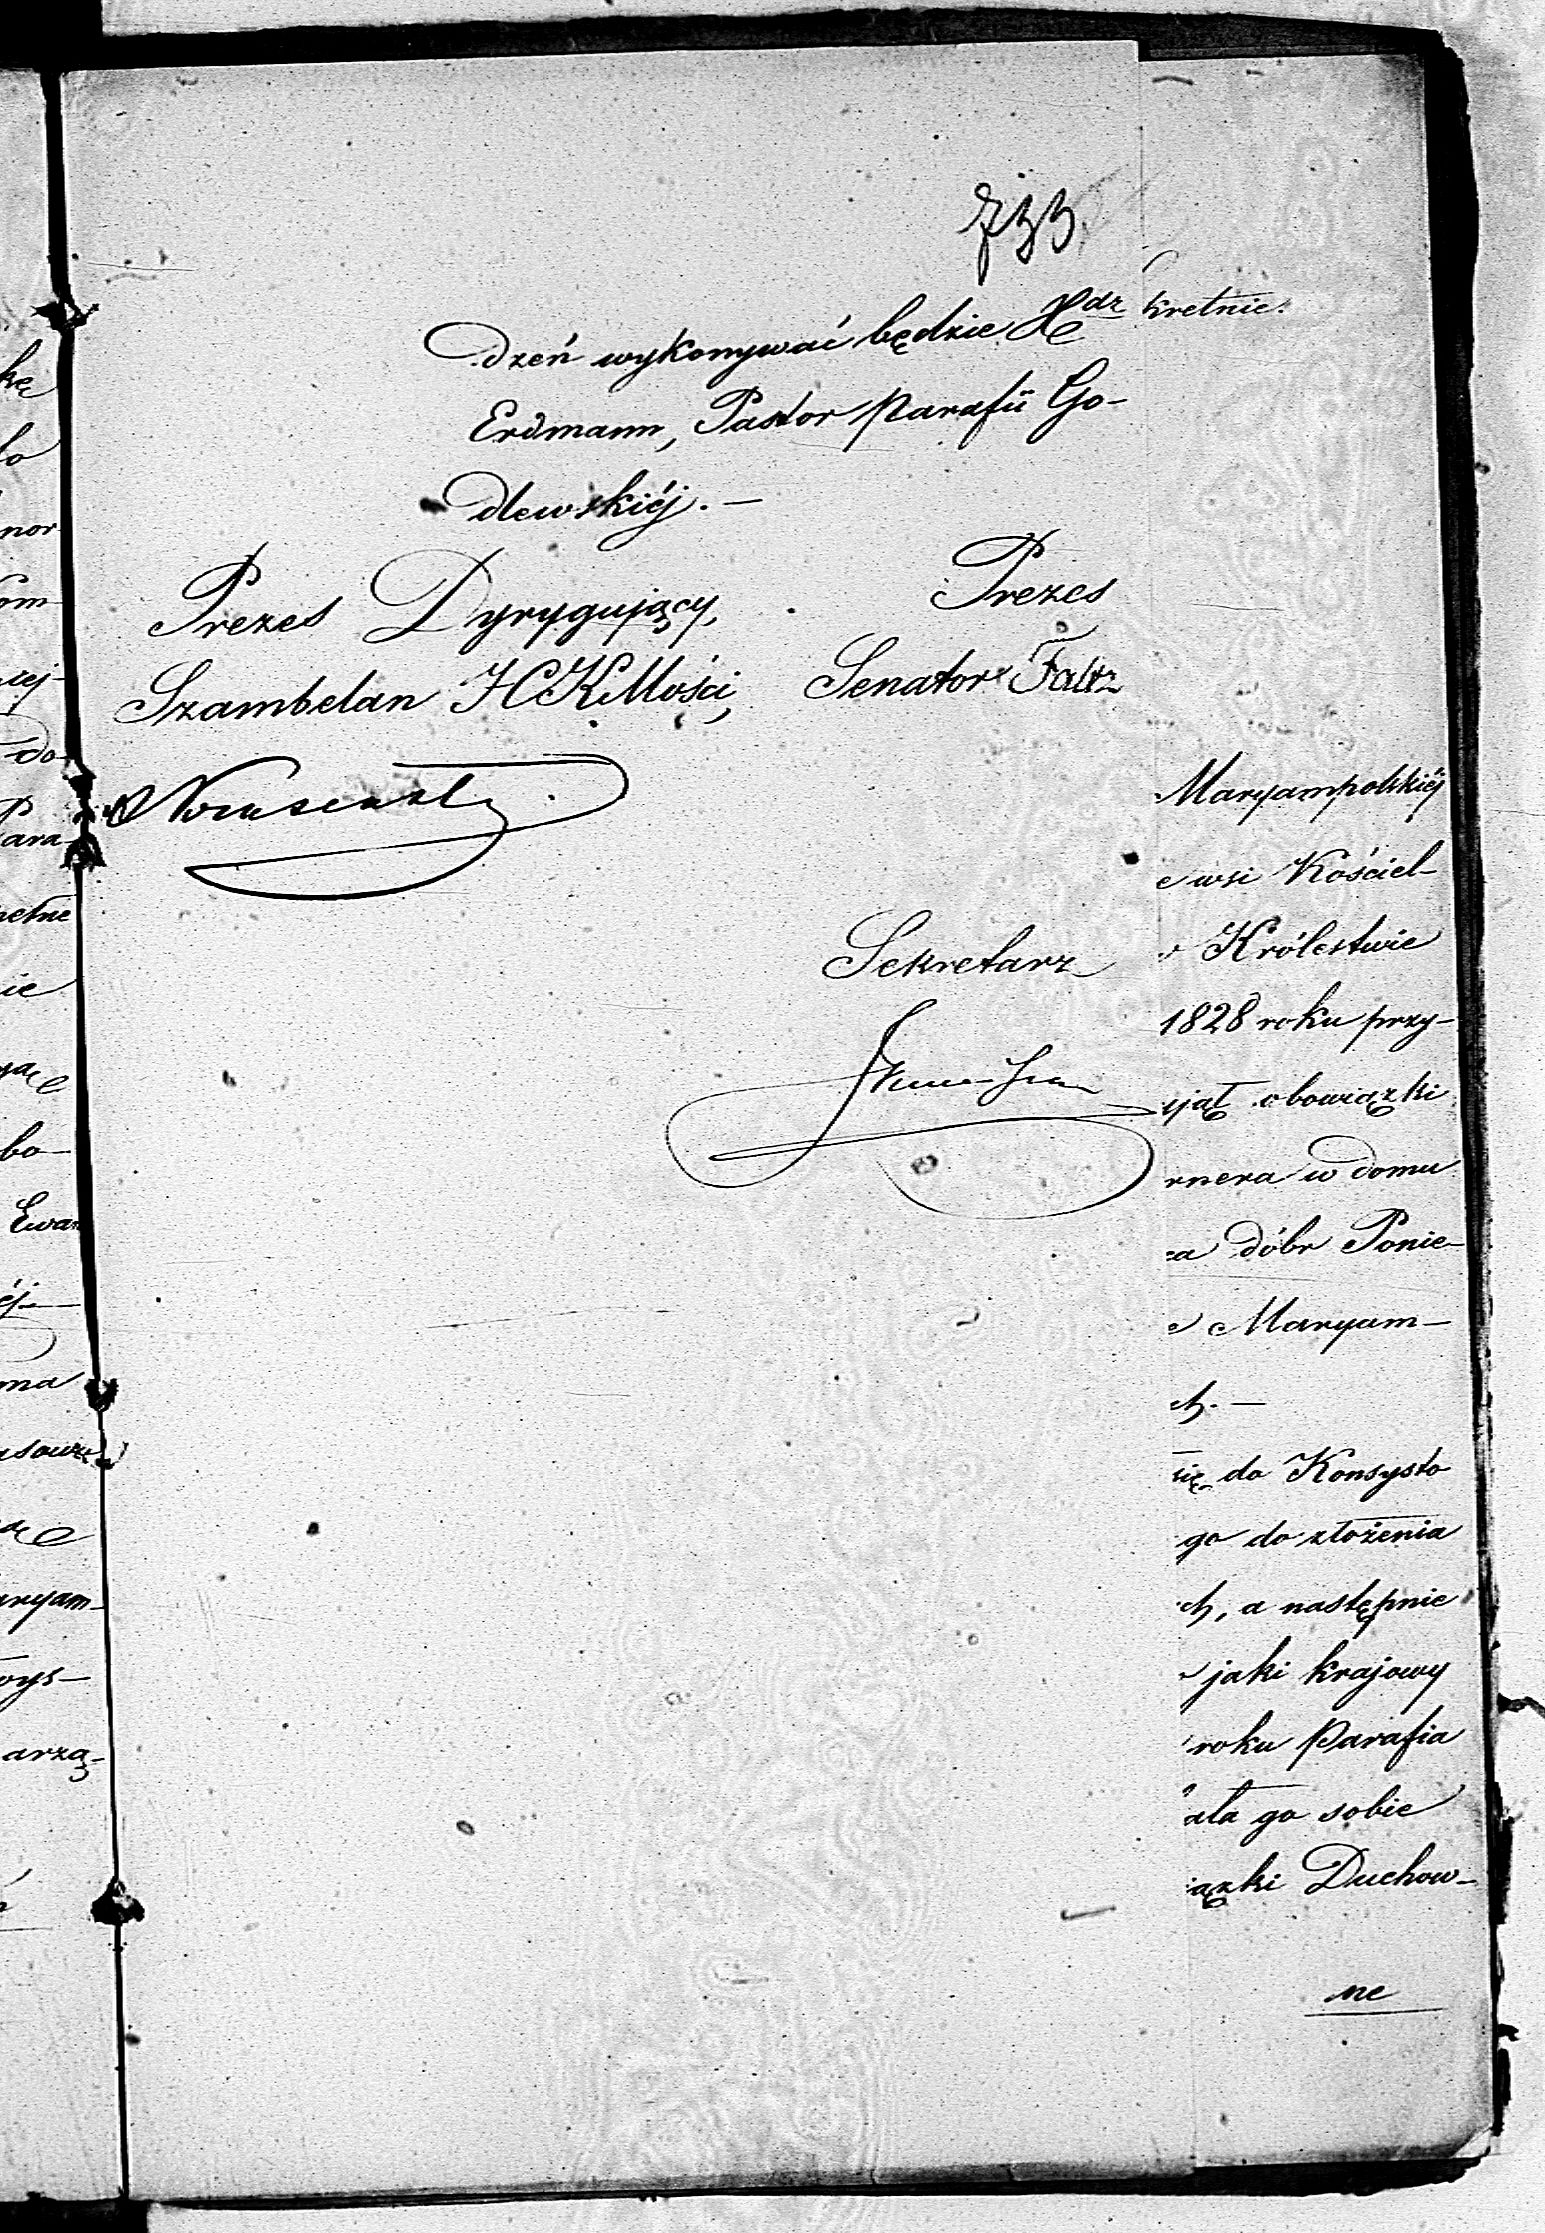 733
dzeń wykonywać będzie Xdz
Erdmann, Pastor Parafii Go-
dlewskiéj. —
Prezes Dyrygujący,
Szambelan JCKMości,
Prezes
Senator Faltz
Sekretarz
kretnie.
Maryampolskiéj
wsi Kościel-
Królestwie
1828 roku przy-
jął obowiązki
rnera w domu
ca dóbr Ponie-
Maryam-
ch. —
się do Konsysto
go do złożenia
ch, a następnie
jaki krajowy
roku Parafia
ała go sobie
iązki Duchow-
ne
kę
ło
nor
om-
iéj-
do-
Para-
ie
bo-
Ewan
éj—
ma
aryam-
arzą-